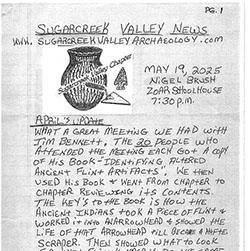 PG. 1
SUGARCREEK VALLEY NEWS
WWW. SUGARCREEKVALLEYARCHAEOLOGY.COM
Sugarcreek Valley Chapter
MAY 19, 2025
NIGEL BRUSH
ZOAR SCHOOLHOUSE
7:30 P.M.
APRIL'S UPDATE
WHAT A GREAT MEETING WE HAD WITH
JIM BENNETT. THE 20 PEOPLE WHO
ATTENDED THE MEETING EACH GOT A COPY
OF HIS BOOK "IDENTIFYING ALTERED
ANCIENT FLINT ARTIFACTS". WE THEN
USED HIS BOOK & WENT FROM CHAPTER TO
CHAPTER REVIEWING ITS CONTENTS
THE KEYS TO THE BOOK IS HOW THE
ANCIENT INDIANS TOOK A PIECE OF FLINT &
WORKED IT INTO ARROWHEAD & SHOWED THE
LIFE OF THAT ARROWHEAD TILL BECAME A HAFTED
SCRAPER. THEN SHOWED WHAT TO LOOK